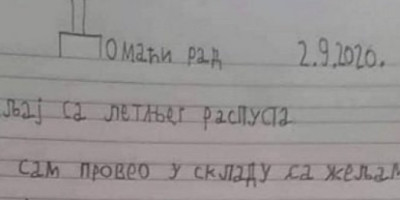 Домаћи рад 2.9.2020.
са летњег распуста
сам провео у складу са